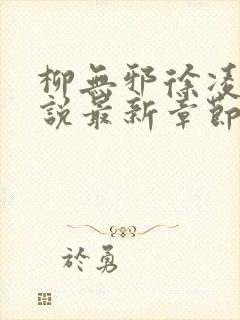 柳無邪徐凌
說最新章節
於勇